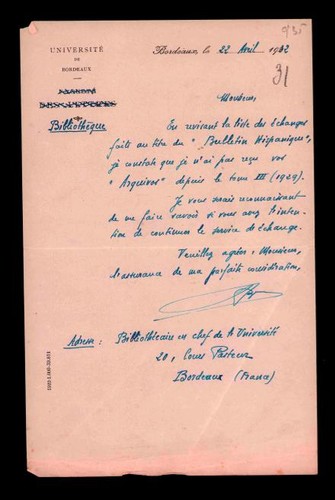 935
31
UNIVERSITÉ
DE
BORDEAUX
Bordeaux, le 22 Avril 1932
Bibliothèque
Monsieur,
En revisant la liste des échanges
faits au titre du "Bulletin Hispanique",
je constate que je n'ai pas reçu vos
"Arquivos" depuis le tome III (1929).
Je vous serais reconnaissant
de me faire savoir si vous avez l'inten-
tion de continuer le service d'échange.
Veuillez agréer, Monsieur,
l'assurance de ma parfaite considération,
Adresse : Bibliothécaire en chef de l'Université
20, Cours Pasteur
Bordeaux (France)